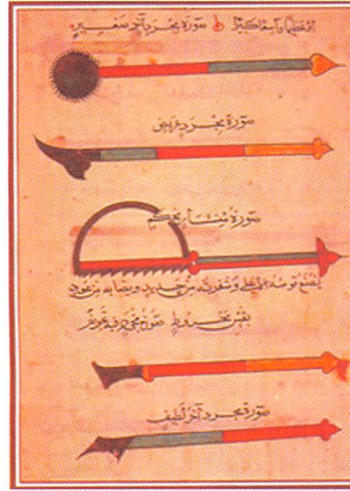 صورة مجرد آخر صغير
صورة مجرد عريض
صورة منشار محكم
يصنع قوسه الاعلى وشفرته من حديد ونصابه من عود
بقس مخروط صورة
صورة مجرد آخر لطيف